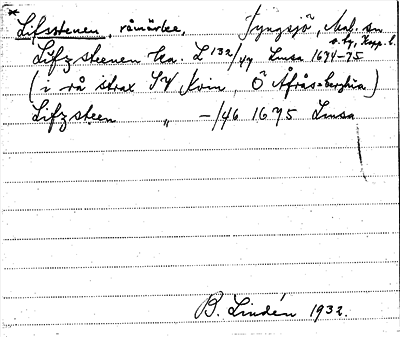 * Lifsstenen, råmärke, Tyngsjö, Mal. sn
s. bg, Kopp. l.
Lufzsteenen Ka. L 132/47 Lmsa 1674-75
(i rå strax SV Kvin, Ö Åfrås=berghia)
Lifzsteen " -/46 1675 Lmsa
B. Lindén 1932.